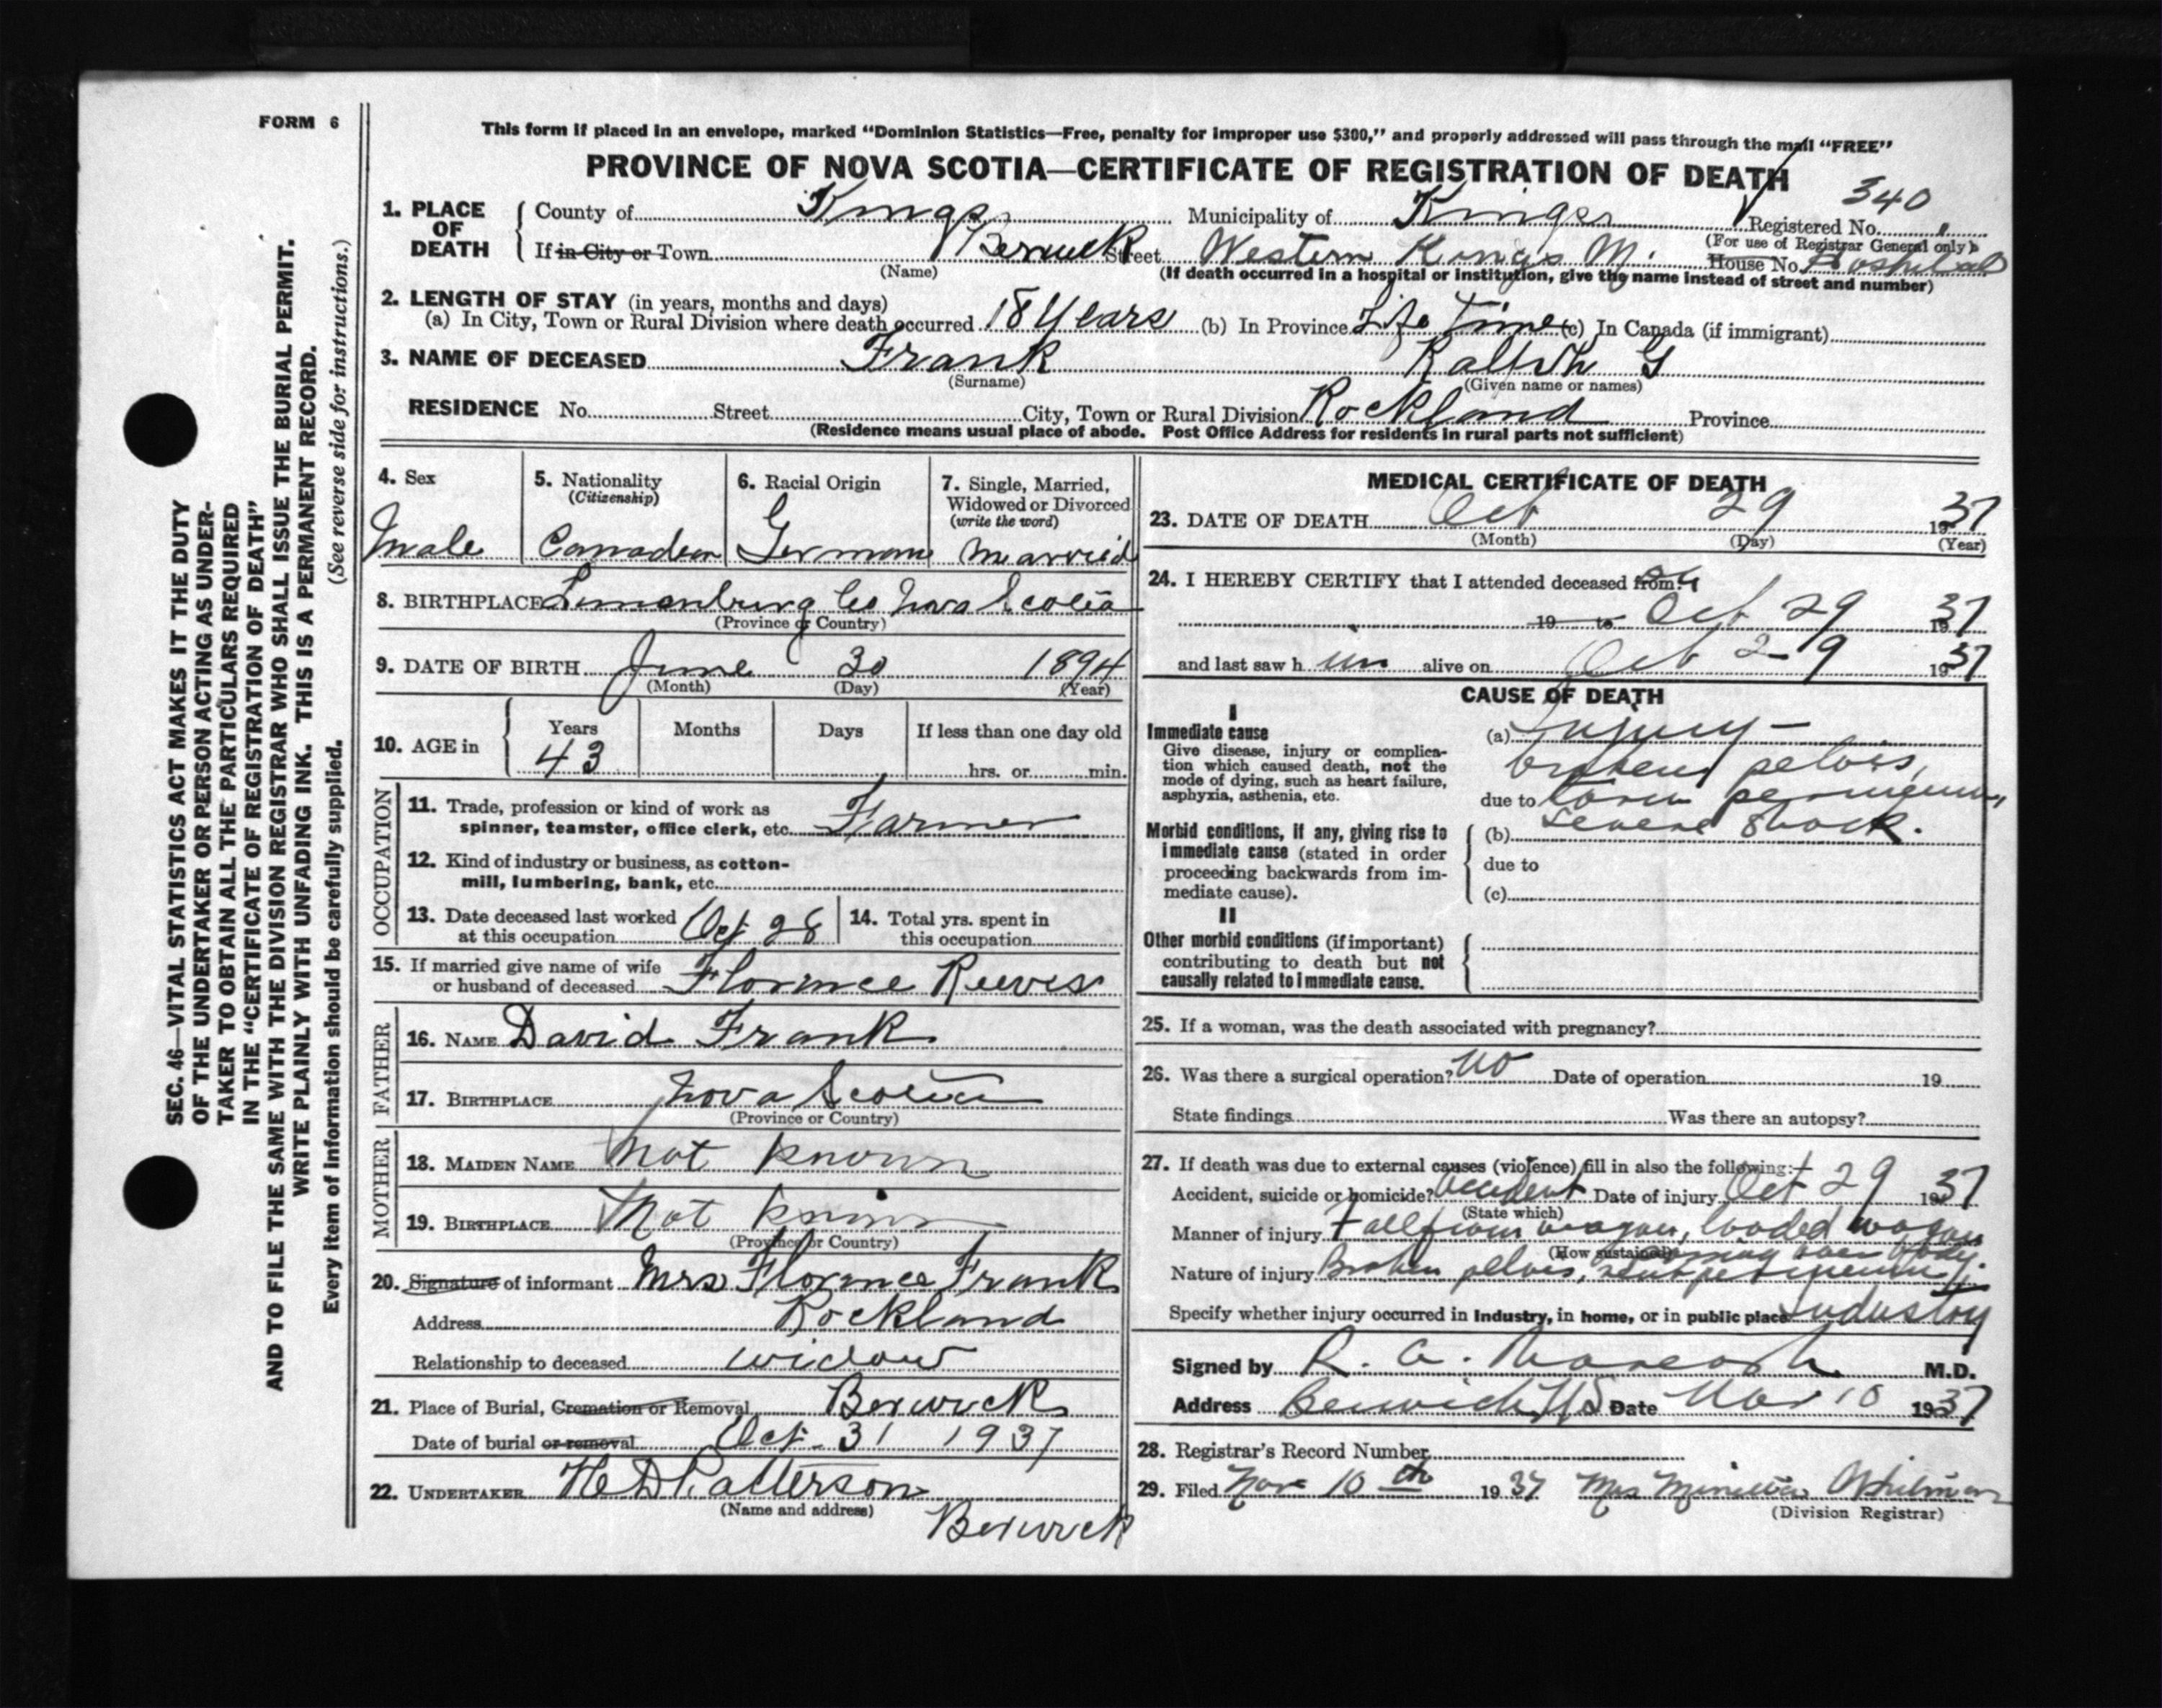 FORM 6
This form if placed in an envelope, marked "Dominion Statistics—Free, penalty for improper use $300," and properly addressed will pass through the mail "FREE"
PROVINCE OF NOVA SCOTIA—CERTIFICATE OF REGISTRATION OF DEATH
340
1. PLACE OF DEATH County of Kings Municipality of Kings Registered No.
(For use of Registrar General only)
If in City or Town Berwick Street Western Kings M. House No. Hospital
(Name) (If death occurred in a hospital or institution, give the name instead of street and number)
2. LENGTH OF STAY (in years, months and days)
(a) In City, Town or Rural Division where death occurred 18 Years (b) In Province Life Time (c) In Canada (if immigrant)
3. NAME OF DECEASED Frank G
(Surname) (Given name or names)
RESIDENCE No. Street City, Town or Rural Division Rockland Province
(Residence means usual place of abode. Post Office Address for residents in rural parts not sufficient)
4. Sex 5. Nationality (Citizenship) 6. Racial Origin 7. Single, Married, Widowed or Divorced (write the word)
Male Canadian German Married
8. BIRTHPLACE Lunenburg Co Nova Scotia
(Province or Country)
9. DATE OF BIRTH June 30 1894
(Month) (Day) (Year)
10. AGE in Years Months Days If less than one day old
43 hrs. or min.
OCCUPATION
11. Trade, profession or kind of work as
spinner, teamster, office clerk, etc. Farmer
12. Kind of industry or business, as cotton-
mill, lumbering, bank, etc.
13. Date deceased last worked at this occupation Oct 28 14. Total yrs. spent in this occupation
15. If married give name of wife
or husband of deceased Florence Reeves
FATHER
16. NAME David Frank
17. BIRTHPLACE Nova Scotia
(Province or Country)
MOTHER
18. MAIDEN NAME Not known
19. BIRTHPLACE Not known
(Province or Country)
20. Signature of informant Mrs Florence Frank
Address Rockland
Relationship to deceased widow
21. Place of Burial, Cremation or Removal Berwick
Date of burial or removal Oct. 31 1937
22. UNDERTAKER H D Patterson
(Name and address)
Berwick
MEDICAL CERTIFICATE OF DEATH
23. DATE OF DEATH Oct 29 1937
(Month) (Day) (Year)
24. I HEREBY CERTIFY that I attended deceased from:
19 to Oct 29 1937
and last saw him alive on Oct 29 1937
CAUSE OF DEATH
I
Immediate cause (a) Injury —
Give disease, injury or complica-
tion which caused death, not the
mode of dying, such as heart failure,
asphyxia, asthenia, etc.
broken pelvis,
due to torn perineum,
severe shock.
Morbid conditions, if any, giving rise to (b)
immediate cause (stated in order due to
proceeding backwards from im-
mediate cause). (c)
II
Other morbid conditions (if important)
contributing to death but not
causally related to immediate cause.
25. If a woman, was the death associated with pregnancy?
26. Was there a surgical operation? no Date of operation 19
State findings Was there an autopsy?
27. If death was due to external causes (violence) fill in also the following:—
Accident, suicide or homicide? Accident Date of injury Oct 29 1937
(State which)
Manner of injury Fall from wagon, loaded wagon
(How sustained) over body.
Nature of injury Broken pelvis,
Specify whether injury occurred in Industry, in home, or in public place Industry
Signed by R. A. M.D.
Address Berwick NS Date Nov 10 1937
28. Registrar's Record Number
29. Filed Nov 10th 1937 Mrs
(Division Registrar)
SEC. 46—VITAL STATISTICS ACT MAKES IT THE DUTY
OF THE UNDERTAKER OR PERSON ACTING AS UNDER-
TAKER TO OBTAIN ALL THE PARTICULARS REQUIRED
IN THE "CERTIFICATE OF REGISTRATION OF DEATH"
AND TO FILE THE SAME WITH THE DIVISION REGISTRAR WHO SHALL ISSUE THE BURIAL PERMIT.
WRITE PLAINLY WITH UNFADING INK. THIS IS A PERMANENT RECORD.
Every item of information should be carefully supplied. (See reverse side for instructions.)